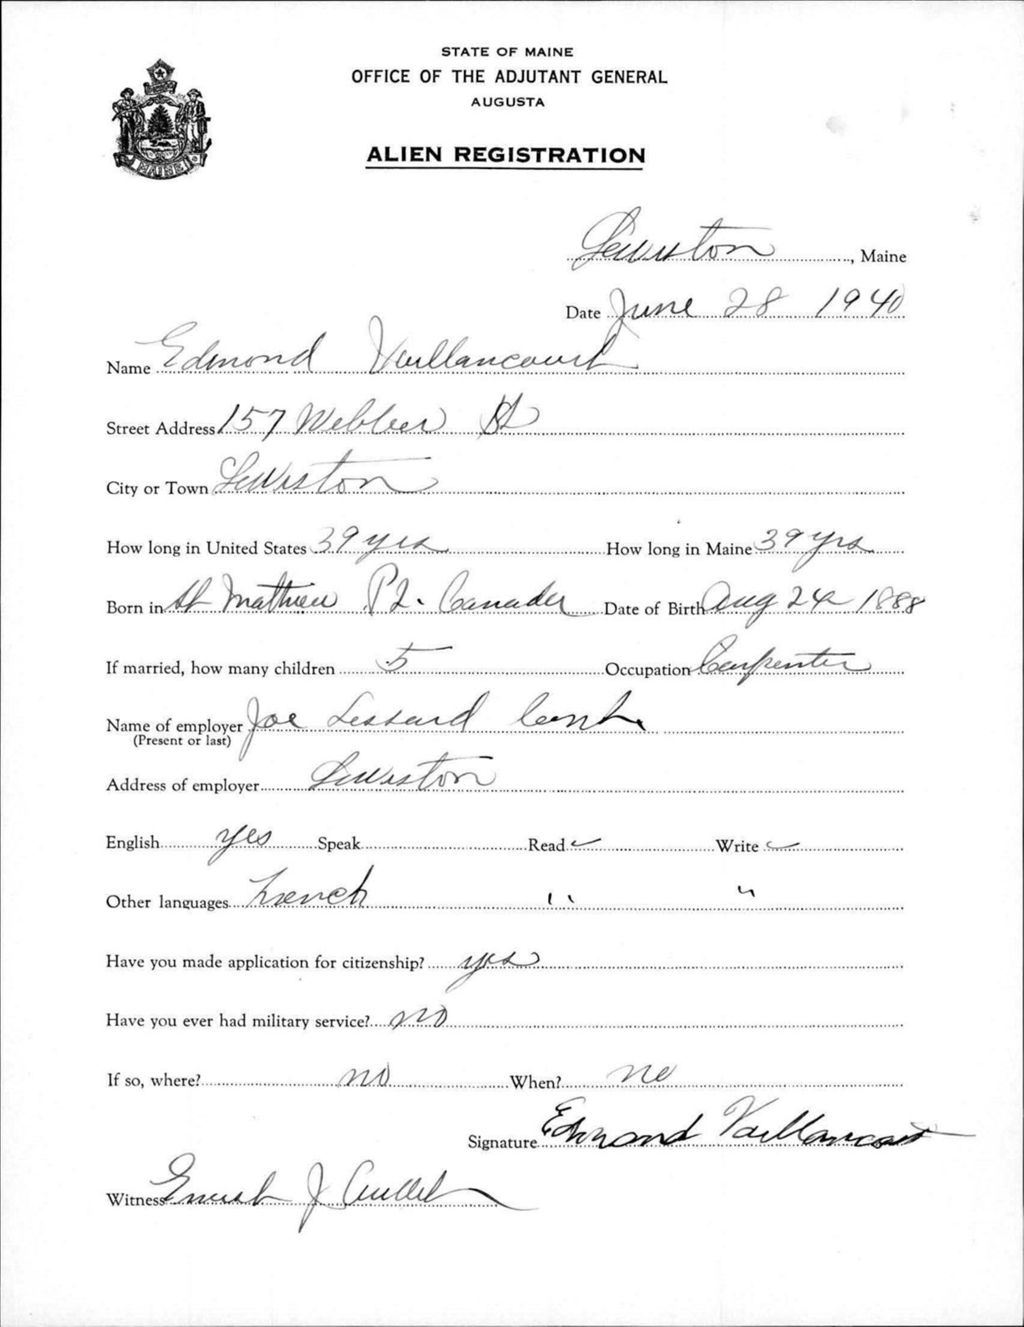 STATE OF MAINE
OFFICE OF THE ADJUTANT GENERAL
AUGUSTA
ALIEN REGISTRATION
MAINE
Lewiston, Maine
Date June 28 1940
Name Edmond Vaillancourt
Street Address 157 Webber St
City or Town Lewiston
How long in United States 39 yrs How long in Maine 39 yrs
Born in St Mathieu P2. Canada Date of Birth Aug 24 1888
If married, how many children 5 Occupation Carpenter
Name of employer Joe Lessard Cont
(Present or last)
Address of employer Lewiston
English yes Speak Read ✓ Write ✓
Other languages French " "
Have you made application for citizenship? yes
Have you ever had military service? no
If so, where? no When? no
Signature Edmond Vaillancourt
Witness J